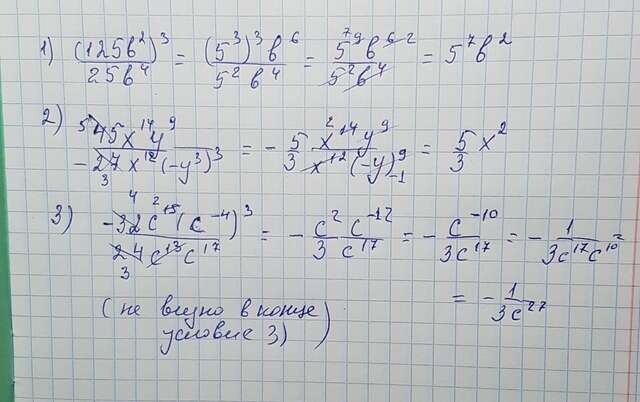 1) (125b²)³ / 25b⁴ = (5³)³ b⁶ / 5² b⁴ = 5⁹ b⁶ / 5² b⁴ = 5⁷ b²
2) 45x¹⁴y⁹ / -27x¹²(-y³)³ = - 5/3 x¹⁴y⁹ / x¹²(-y)⁹ = 5/3 x²
3) -32c¹⁵(c⁻⁴)³ / 24c¹³c¹⁷ = - c²c⁻¹² / 3 c¹⁷ = - c⁻¹⁰ / 3c¹⁷ = - 1 / 3c¹⁷c¹⁰ =
= - 1 / 3c²⁷
(не видно в конце
условие 3)